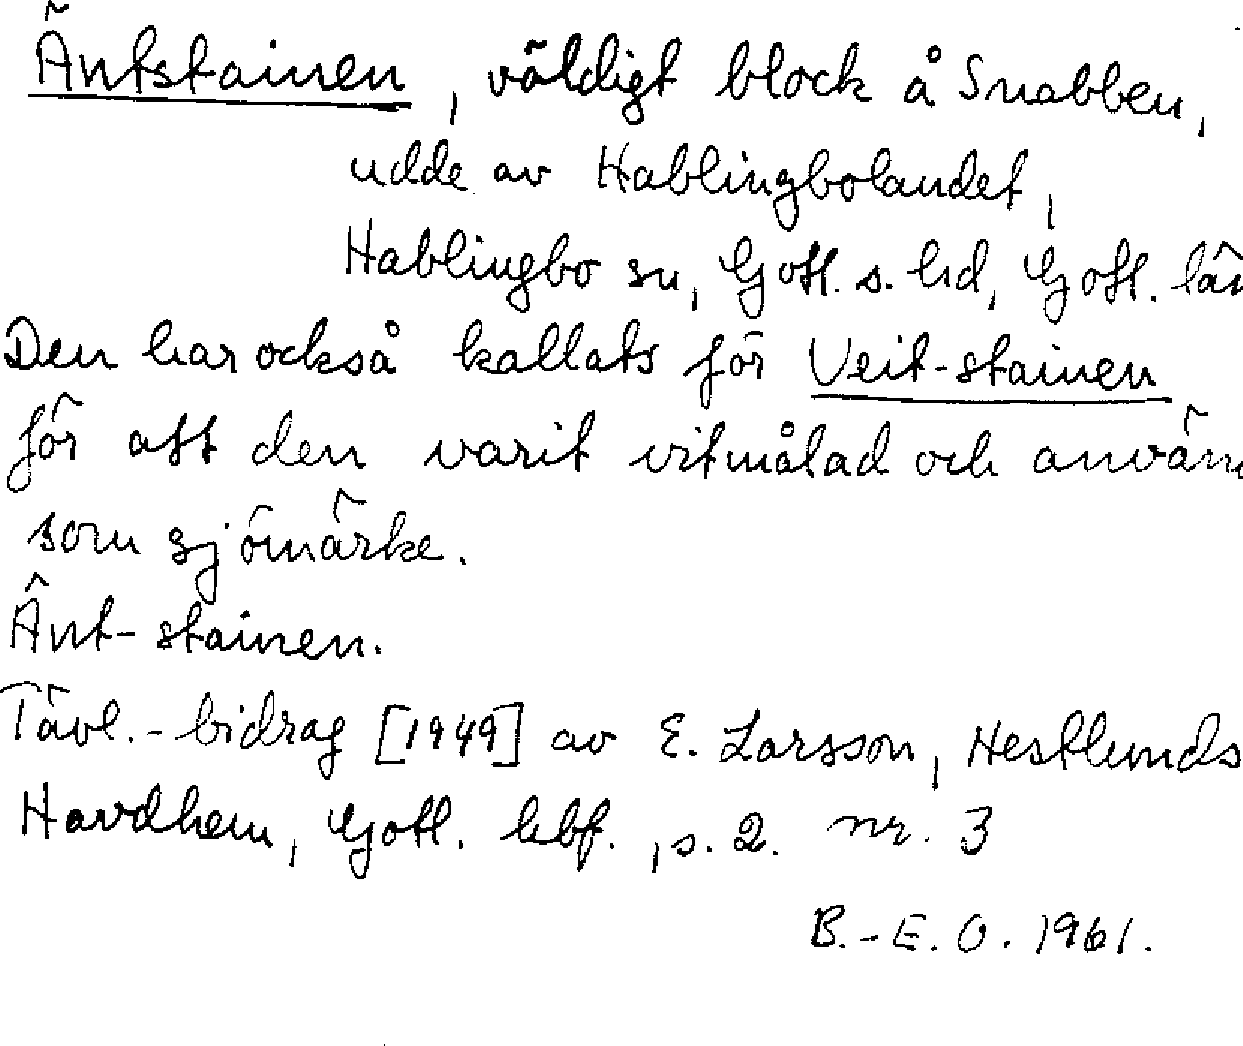 Äntstainen, väldigt block å Snabben,
udde av Hablingbolandet,
Hablingbo sn, Gotl. s. hd, Gotl. län
Den har också kallats för Veit-stainen
för att den varit vitmålad och använ
som sjömärke.
Änt-stainen.
Tävl.-bidrag [1949] av E. Larsson, Hestlunds
Havdhem, Gotl. hbf., s. 2. nr. 3
B.-E. O. 1961.